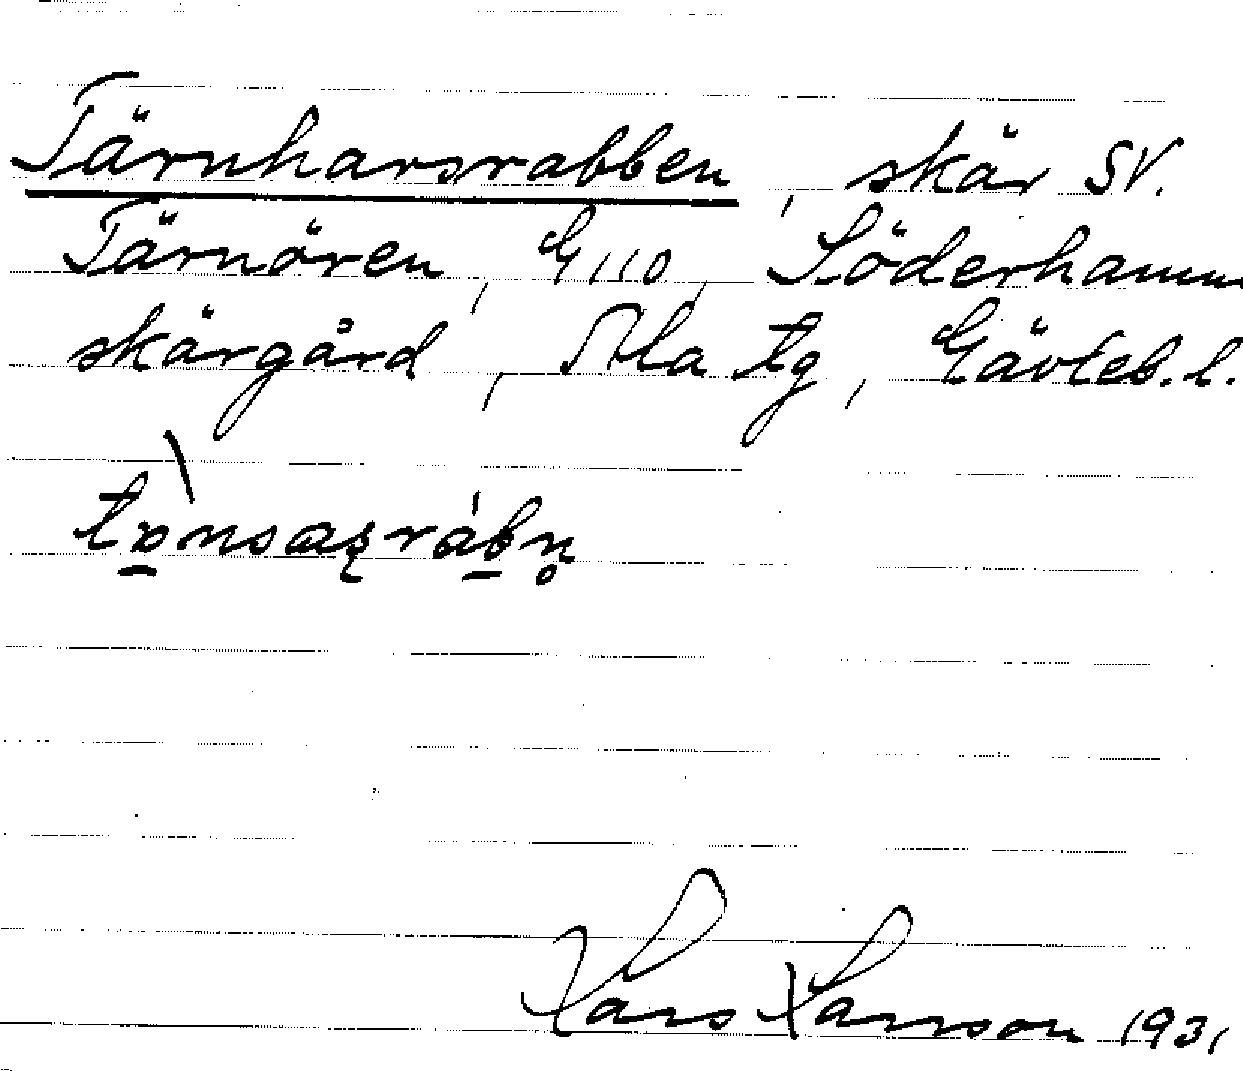 Tärnharsrabben, skär SV.
Tärnören, G 110, Söderhamns
skärgård, Ala tg, Gävleb. l.
Lars Larsson 1931